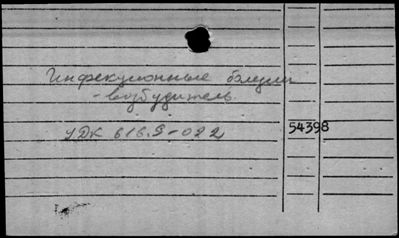 Инфекционные болезни
- возбудитель.
УДК 616.9-022
54398